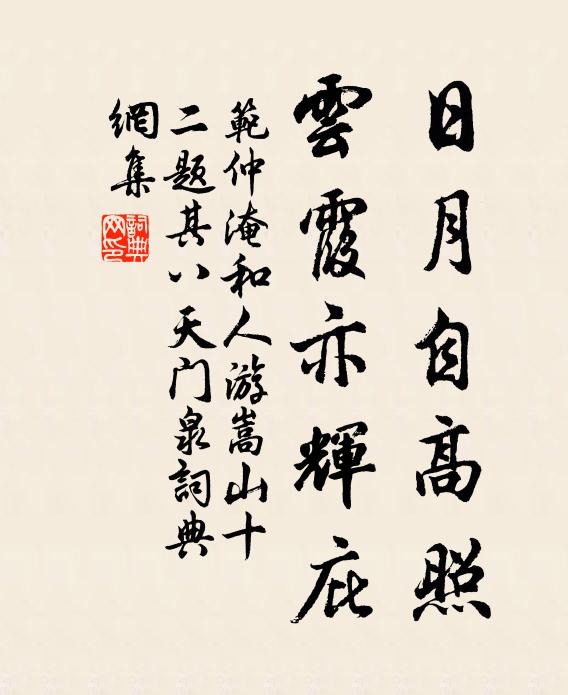 日月自高照
雲霞亦輝庇
範仲淹和人游嵩山十
二題其八天门泉詞典
網集
詞典
网印